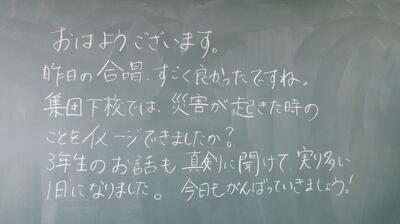 おはようございます。
昨日の合唱、すごく良かったですね。
集団下校では、災害が起きた時の
ことをイメージできましたか?
3年生のお話も真剣に聞けて、実り多い
1日になりました。 今日もがんばっていきましょう!